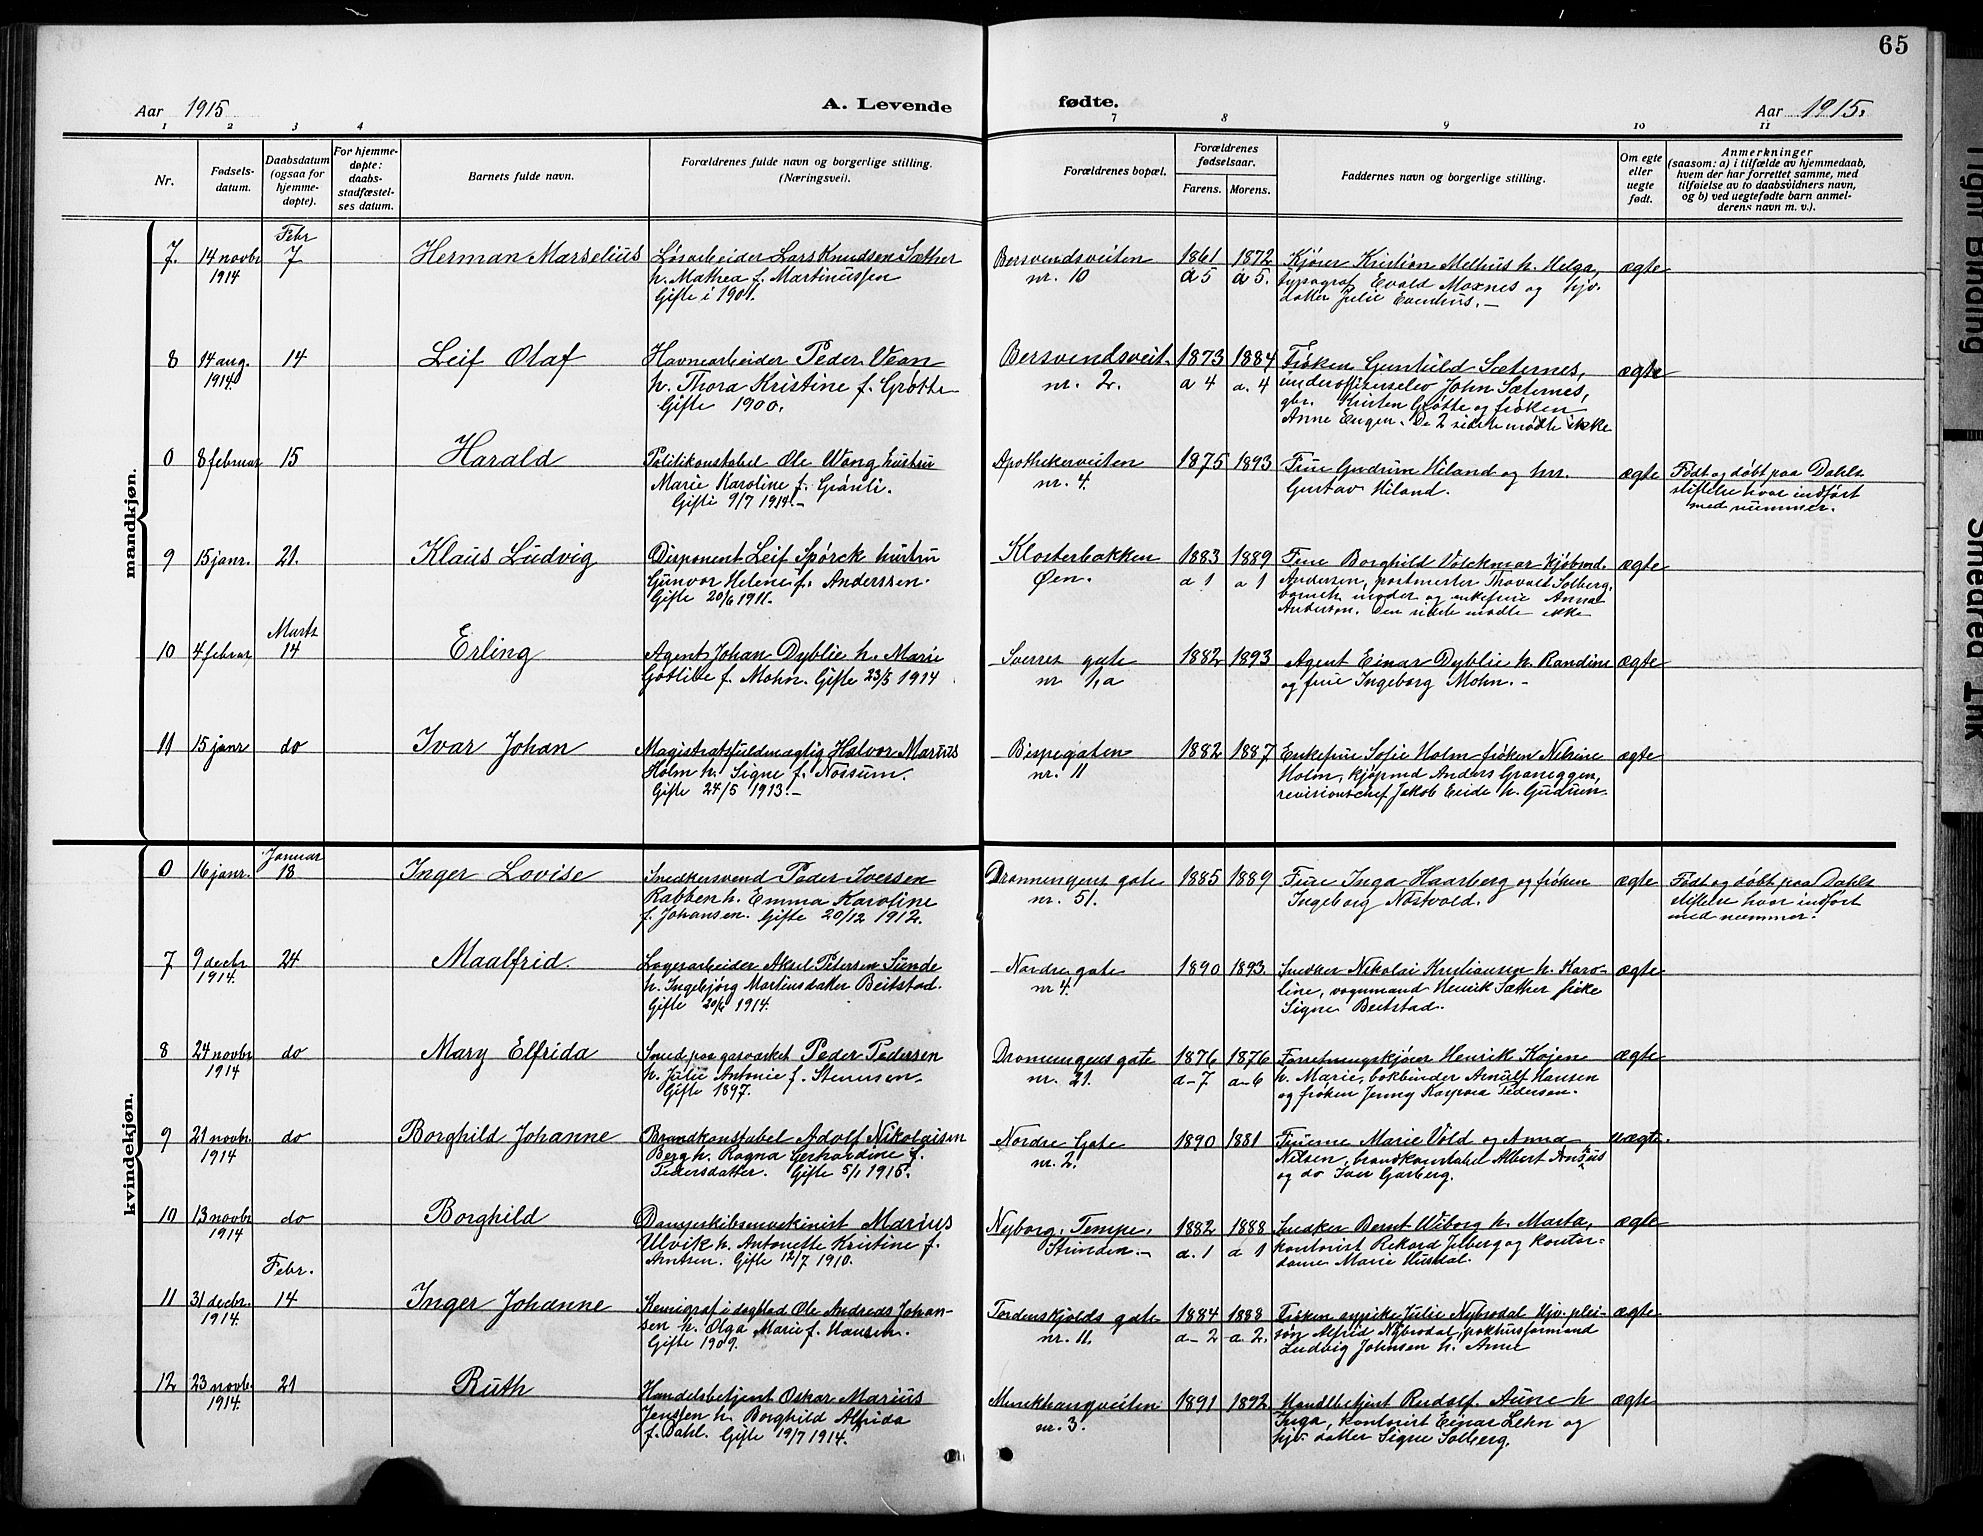 65
Aar 1915
A. Levende
fødte.
Aar 1915.
1 2 3 4
7 8 9 10 11
Nr.
Fødsels-
datum.
Daabsdatum
(ogsaa for
hjemme-
døpte).
For hjemme-
døpte:
daabs-
stadfæstel-
ses datum.
Barnets fulde navn.
Forældrenes fulde navn og borgerlige stilling.
(Næringsvei).
Forældrenes bopæl.
Forældrenes
fødselsaar.
Farens. Morens.
Faddernes navn og borgerlige stilling.
Om egte
eller
uegte
født.
Anmerkninger
(saasom: a) i tilfælde av hjemmedaab,
hvem der har forrettet samme, med
tilføielse av to daabsvidners navn,
og b) ved uegtefødte barn anmel-
derens navn m. v.).
mandkjøn.
Febr
7. 14 novbr 7 Herman Marselius Løsarbeider Lars Knudsen Sæther Bersvendsveiten 1861 1872 Kjører Kristian Melhus h. Helga, ægte
1914 h. Mathea f. Martinussen nr. 10 a 5 a 5. typograf Evald Moxnes og hjv.
Gifte i 1901. datter Julie
8 14 aug. 14 Leif Olaf Havnearbeider Peder Vean Bersvendsveit. 1873 1884 Frøken Gunhild Sæternes, ægte
1914. h. Thora Kristine f. Grøtte nr. 2. a 4 a. 4 underofficerselev John Sæternes,
Gifte 1900. gbr. Kristen Grøtte og frøken
Anne Engen. De 2 sidste mødte ikke
0 8 februar 15 Harald Politikonstabel Ole Wang hustru Apothekerveiten 1875 1893 Frue Gudrun Hiland og hr. ægte Født og døbt paa Dahls
Marie Karoline f. Grønli. nr. 4. Gustav Hiland. stiftelse hvor indført
Gifte 9/7 1914.- med nummer.
9 15 janr. 21. Klaus Ludvig Disponent Leif Spørck hustru Klosterbakken 1883 1889 Frue Borghild Volckmar Kjøbmd. ægte
Gunvor Helene f. Anderssen. Øen. a 1 a 1 Andersen, postmester Thovald Solberg,
Gifte 20/6 1911. barnets moder og enkefrue Anna
Andersen. Den sidste mødte ikke
Marts
10 4 februar 14 Erling Agent Johan Dyblie h. Marie Sverres gate 1882 1893 Agent Einar Dyblie h. Randine ægte
Gotlibe f. Mohn. Gifte 23/5 1914 nr 1,a og frue Ingeborg Mohn.-
11 15 janr do Ivar Johan Magistratsfuldmægtig Halvor Marius Bispegaten 1882 1887 Enkefrue Sofie Holm frøken Nikrine ægte
Holm h. Signe f. Nossum. nr. 11 Holm, kjøpmd Anders Graneggen,
Gifte 24/5 1913.- revisionschef Jakob Eeide h. Gudrun.
kvindekjøn.
Januar
0 16 janr. 18 Inger Lovise Snedkersvend Peder Iversen Dronningens gate 1885 1889 Frue Inga Haarberg og frøken ægte Født og døbt paa Dahls
Rabben h. Emma Karoline nr. 51. Ingeborg Nøstvold. stiftelse hvor indført
f. Johansen. Gifte 20/12 1912. med nummer.
7 9 decbr 24 Maalfrid. Lagerarbeider Aksel Petersen Sunde Nordre gate 1890 1893. Snedker Nikolai Kristiansen h. Karo- ægte
1914. h. Ingebjørg Martinsdatter Beitstad. nr 4. line, vognmand Henrik Sæther frøke
Gifte 20/6 1914. Signe Beitstad.
8 24 novbr do Mary Elfrida Smed paa gasværket Peder Pedersen Dronningens gate 1876 1876 Forretningskjører Henrik Kojen ægte
1914 h. Julie Antonie f. Stenersen. nr. 21. a-7 a-6 h. Marie, bokbinder Arnulf Hansen
Gifte 1897. og frøken Jenny Kaspara Pedersen.
9 21 novbr. do Borghild Johanne Brandkonstabel Adolf Nikolaisen Nordre Gate 1890 1881 Fruerne Marie Vold og Anna uægte
1914 Berg h. Ragna Gerhardine f. nr. 2. Nilsen, brandkonstabel Albert
Pedersdatter. Gifte 5/1 1915. og do Iver Garberg.
10 13 novbr do Borghild Dampskibsmaskinist Marius Nyborg, Tempe, 1882 1888 Snedker Bernt Wiborg h. Marta, ægte
1914 Ulvik h. Antonette Kristine f. Strinden.- a. 1 a 1 kontorist Rekord Jelberg og kontor-
Arntsen. Gifte 12/7 1910. dame Marie Husdal.
Febr.
11 31 decbr. 14 Inger Johanne Kemigraf i dagblad Ole Andreas Johan- Tordenskjolds gate 1884 1888 Frøken sypike Julie Nybrodal Hjv. plei- ægte
1914. sen h. Olga Marie f. Hansen. nr. 11. a-2 a 2. søn Alfrid Nybrodal, pakhusformand
Gifte 1909. Ludvig Johnsen h. Anne
12 23 novb. 21 Ruth Handelsbetjent Oskar Marius Munkhaugveiten 1891 1892 Handlbetjent Rudolf Aune h ægte
1914. Jenssen h. Borghild Alfrida nr. 3. Inga, kontorist Einar Lehn og
f. Dahl. Gifte 19/7 1914. hjv. datter Signe Solberg.